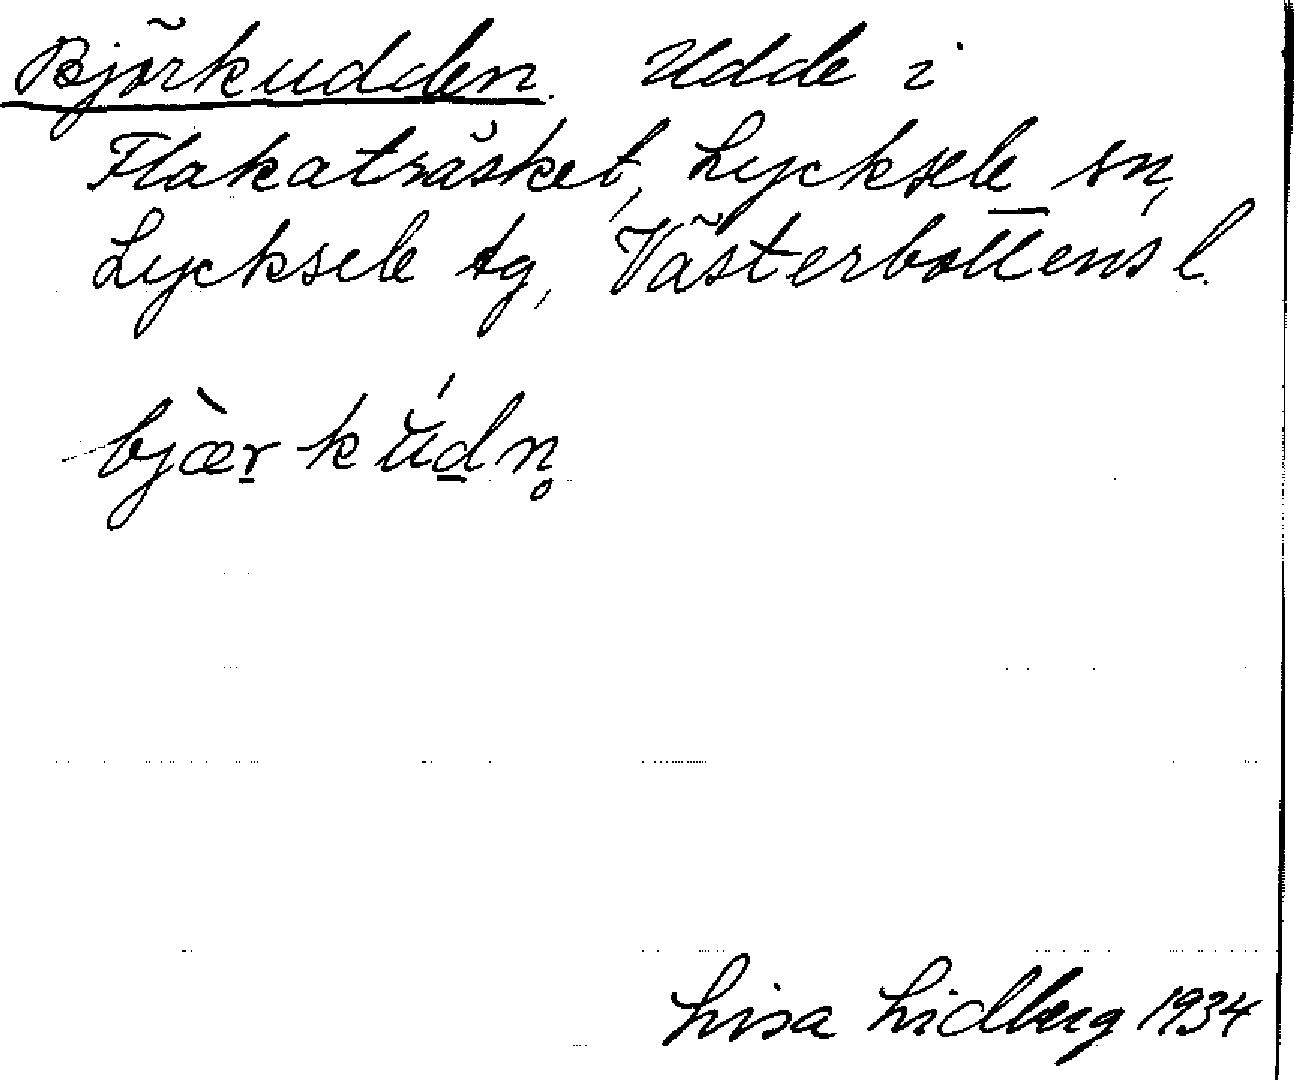 Björkudden. Udde i
Flakaträsket, Lycksele sn,
Lycksele tg, Västerbottens l.
bjæ̀r̠kúd̠n̥
Lisa Lidberg 1934